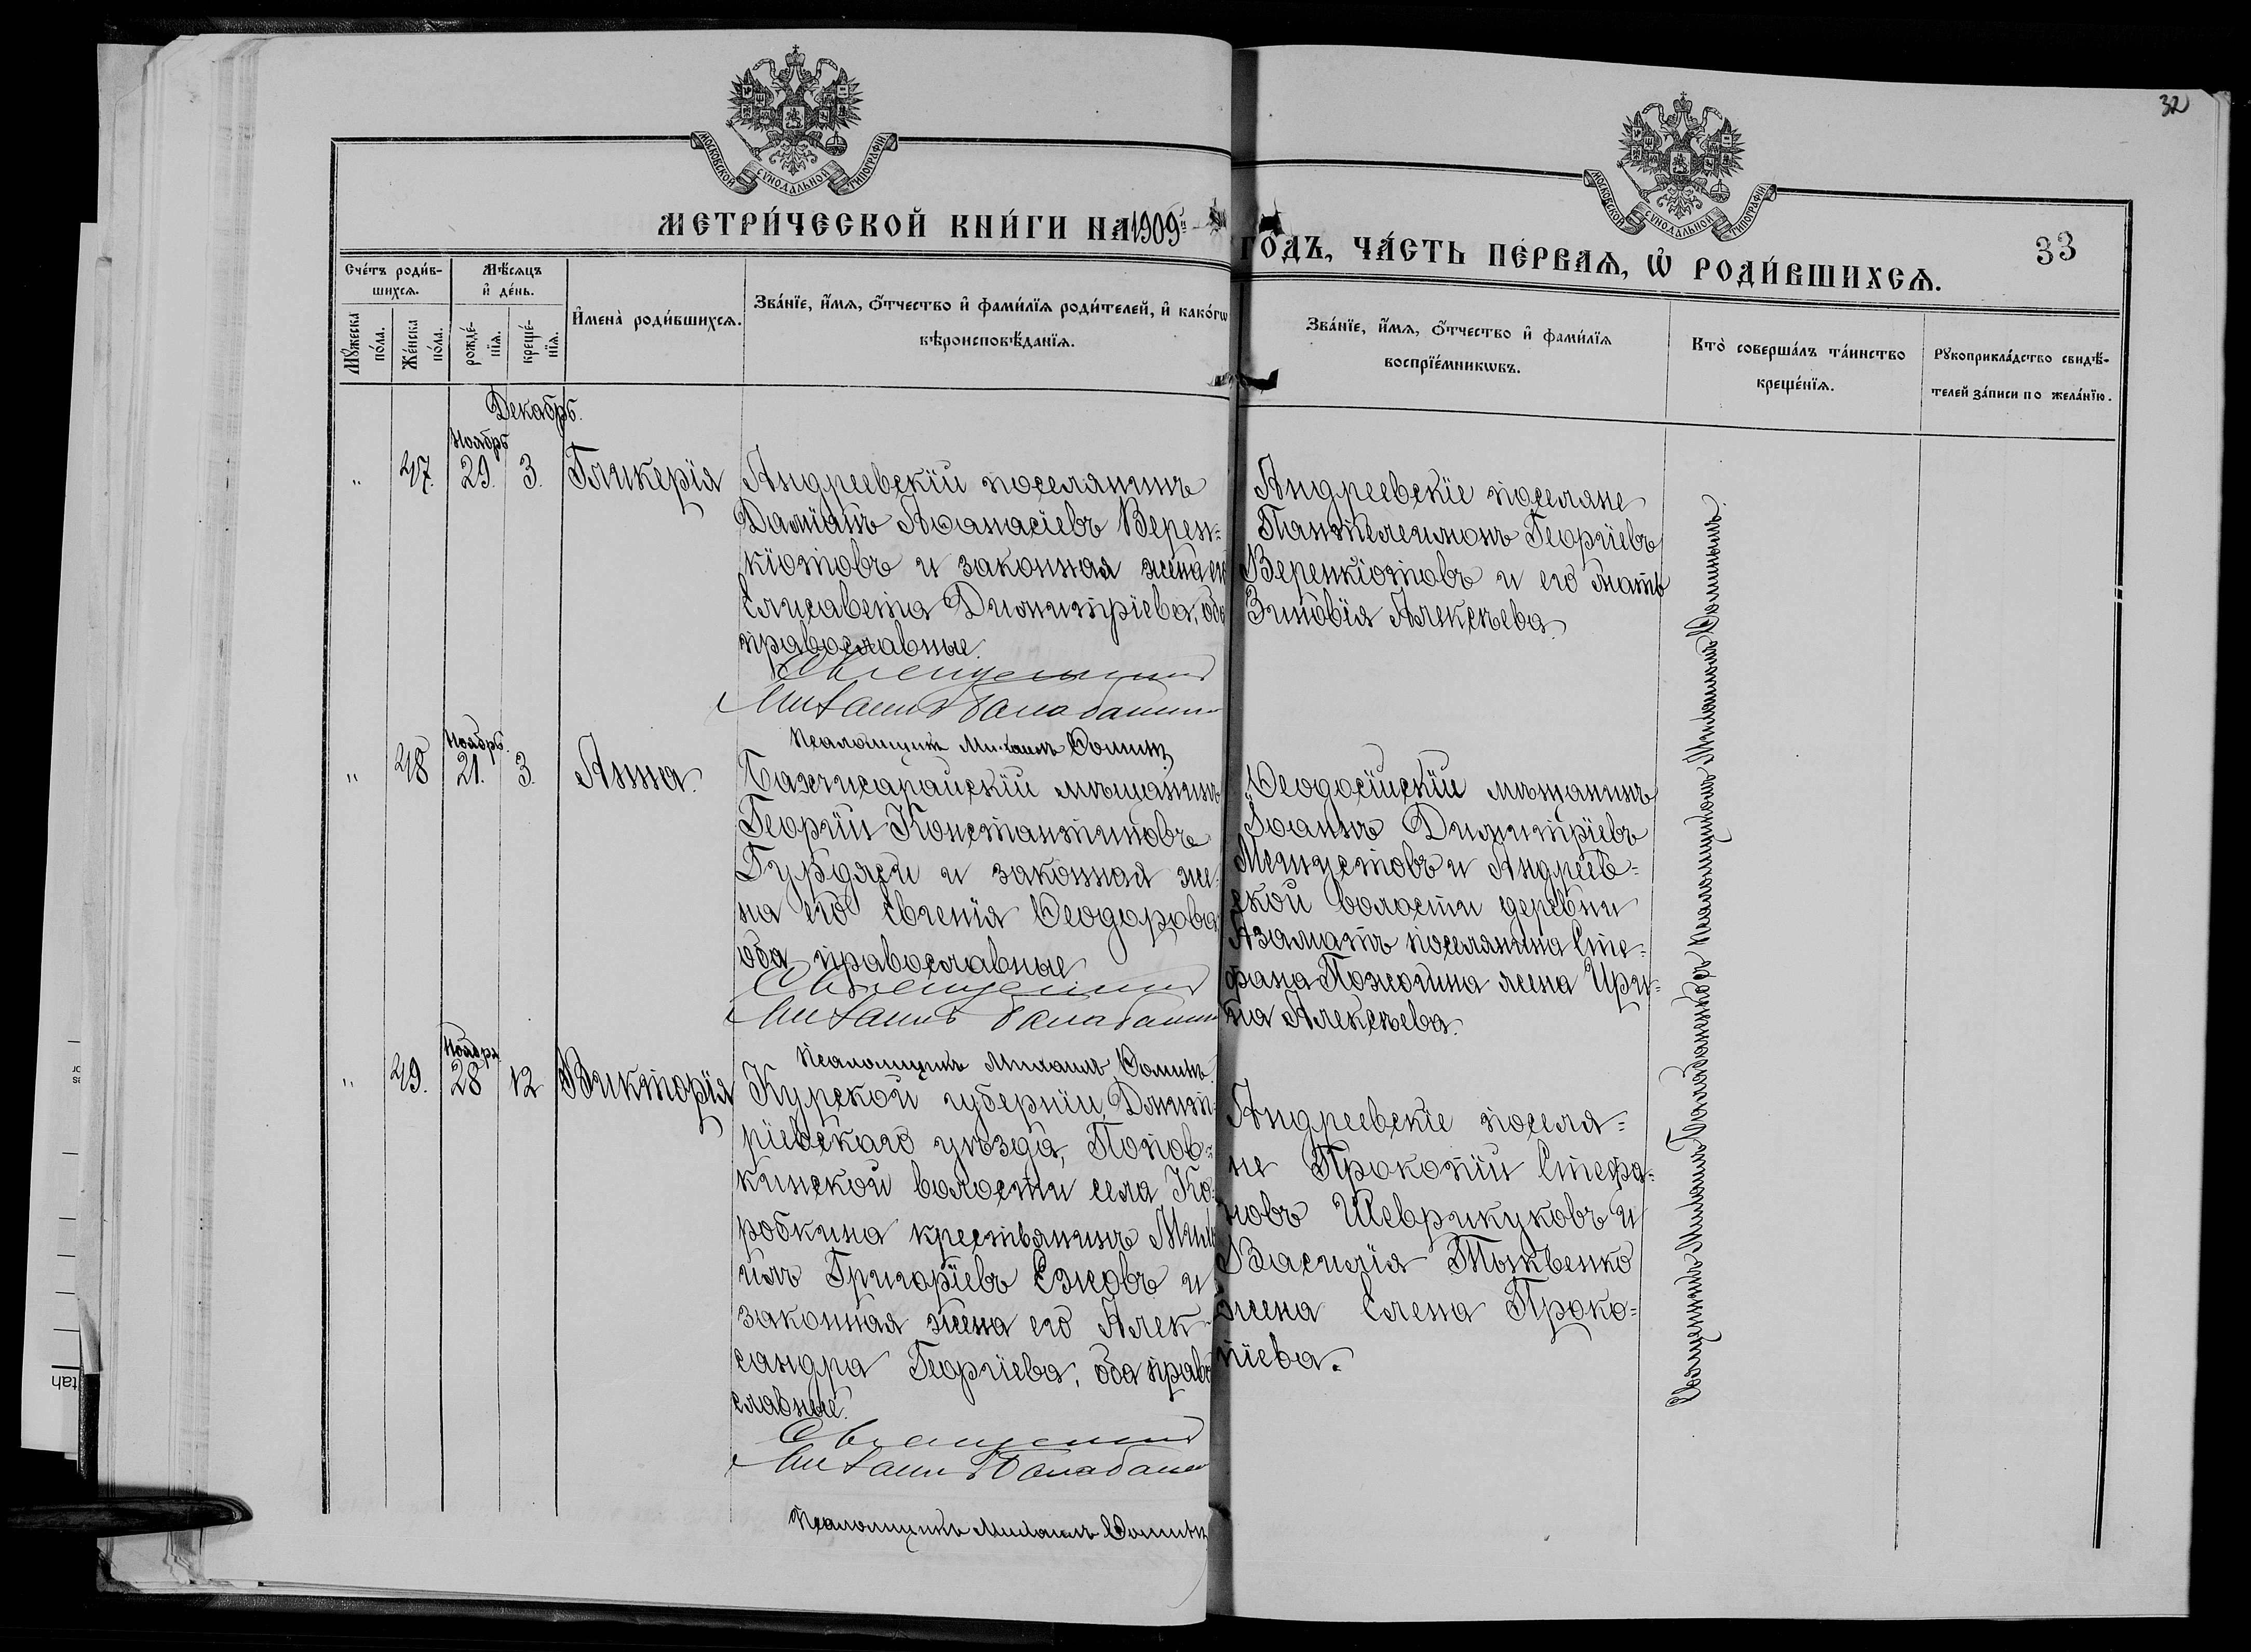 32
МОСКОВСКОЙ СѴНОДАЛЬНОЙ ТИПОГРАФІИ
МОСКОВСКОЙ СѴНОДАЛЬНОЙ ТИПОГРАФІИ
МЕТРИ́ЧЕСКОЙ КНИ́ГИ НА 1909й
ГО́ДЪ, ЧА́СТЬ ПЕ́РВАѦ, Ѡ҆ РОДИ́ВШИХСѦ.
33
Сче́тъ роди́в-
шихсѧ.
Мꙋ́жеска
по́ла.
Же́нска
по́ла.
Мѣ́сѧцъ
и҆ де́нь.
рожде́-
нїѧ.
креще́-
нїѧ.
И҆мена̀ роди́вшихсѧ.
Зва́нїе, и҆́мѧ, о҆́тчество и҆ фами́лїѧ роди́телей, и҆ како́гѡ
вѣроисповѣ́данїѧ.
Зва́нїе, и҆́мѧ, о҆́тчество и҆ фами́лїѧ
воспрїе́мникѡвъ.
Кто̀ соверша́лъ та́инство
креще́нїѧ.
Рꙋкоприкла́дство свидѣ́-
телей за́писи по жела́нїю.
Декабрь.
Ноябрь
„ 47. 29. 3. Гликерія
Андреевскій поселянинъ
Даміанъ Аѳанасіевъ Верен-
кіотовъ и законная жена его
Елисавета Димитріева, оба
православные.
Священникъ
Михаилъ Балабаненко
Псаломщикъ Михаилъ Ѳоминъ
Андреевскіе поселяне
Пантелеимонъ Георгіевъ
Веренкіотовъ и его мать
Зиновія Алексѣева.
Ноябрь.
„ 48 21. 3. Анна.
Бахчисарайскій мѣщанинъ
Георгій Константиновъ
Гурджи и законная же-
на его Евгенія Ѳеодорова,
оба православные
Священникъ
Михаилъ Балабаненко
Псаломщикъ Михаилъ Ѳоминъ.
Ѳеодосійскій мѣщанинъ
Іоаннъ Димитріевъ
и Андреев-
ской волости деревни
Азаматъ поселянина Сте-
фана жена Ири-
на Алексѣева.
Ноября
„ 49. 28 12 Викторія
Курской губерніи, Дмит-
ріевскаго уѣзда, Попов-
кинской волости села Ко-
робкина крестьянинъ Миха-
илъ Григоріевъ Езиовъ и
законная жена его Алек-
сандра Георгіева, оба право
славные.
Священникъ
Михаилъ Балабаненко
Псаломщикъ Михаилъ Ѳоминъ
Андреевскіе поселя-
не Прокопій Стефа-
новъ Шеврикуковъ и
Василія Тыквенко
жена Елена Проко-
піева.
Священникъ Михаилъ Балабаненко съ псаломщикомъ Михаиломъ Ѳоминымъ.